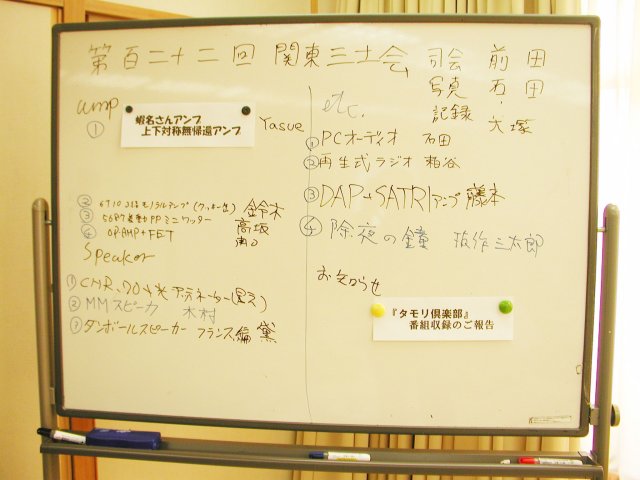 第百二十二回 関東三土会 司会 前田
写真 石田
記録 大塚
amp
① 蝦名さんアンプ
上下対称無帰還アンプ Yasue
② モノラルアンプ 鈴木
③ PPミニワッター 高坂
④ OPAMP+FET
Speaker
①
② MMスピーカ 木村
③ ダンボールスピーカー フランス編
etc.
① PCオーディオ 石田
② 再生式ラジオ 粕谷
③ DAP SATRIアンプ 藤本
④ 除夜の鐘 抜作三太郎
お知らせ
『タモリ倶楽部』
番組収録のご報告